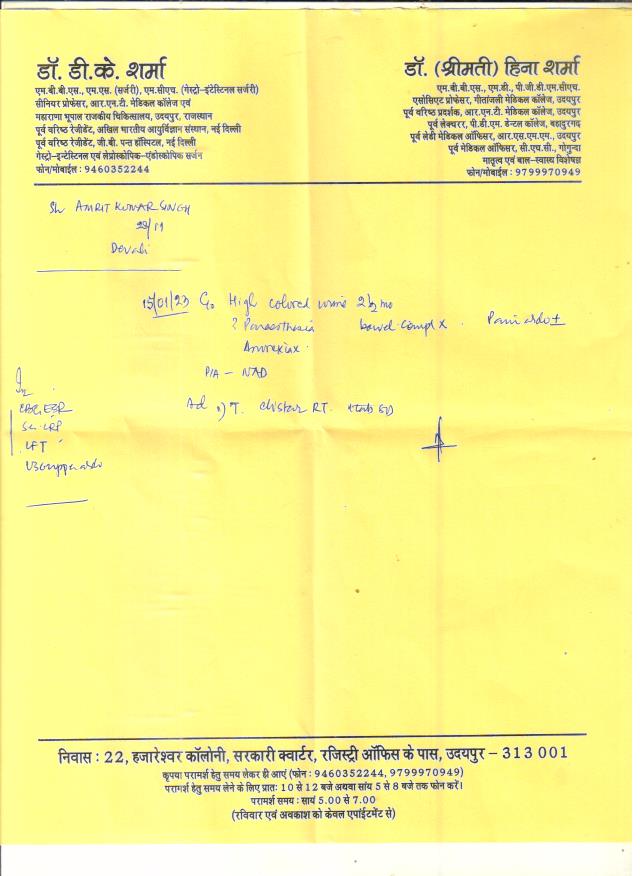 डॉ. डी.के. शर्मा
एम.बी.बी.एस., एम.एस. (सर्जरी), एम.सीएच. (गेस्ट्रो-इंटेस्टिनल सर्जरी)
सीनियर प्रोफेसर, आर.एन.टी. मेडिकल कॉलेज एवं
महाराणा भूपाल राजकीय चिकित्सालय, उदयपुर, राजस्थान
पूर्व वरिष्ठ रेजीडेंट, अखिल भारतीय आयुर्विज्ञान संस्थान, नई दिल्ली
पूर्व वरिष्ठ रेजीडेंट, जी.बी. पन्त हॉस्पिटल, नई दिल्ली
गेस्ट्रो-इन्टेस्टिनल एवं लेप्रोस्कोपिक-एंडोस्कोपिक सर्जन
फोन/मोबाईल : 9460352244
डॉ. (श्रीमती) हिना शर्मा
एम.बी.बी.एस., एम.डी., पी.जी.डी.एम.सीएच.
एसोसिएट प्रोफेसर, गीतांजली मेडिकल कॉलेज, उदयपुर
पूर्व वरिष्ठ प्रदर्शक, आर.एन.टी. मेडिकल कॉलेज, उदयपुर
पूर्व लेक्चरर, पी.डी.एम. डेन्टल कॉलेज, बहादुरगढ़
पूर्व लेडी मेडिकल ऑफिसर, आर.एस.एम.एम., उदयपुर
पूर्व मेडिकल ऑफिसर, सी.एच.सी., गोगुन्दा
मातृत्व एवं बाल-स्वास्थ्य विशेषज्ञ
फोन/मोबाईल : 9799970949
Sh AMRIT KUMAR SINGH
Devali
15/01/23 C/o High colored urine 2½ mo
? Paraesthesia bowel compl X. Pain abdo ±
Anorexia X.
P/A - NAD
Ad 1) T.
CBC, ESR
Sr. CRP
LFT
निवास : 22, हजारेश्वर कॉलोनी, सरकारी क्वार्टर, रजिस्ट्री ऑफिस के पास, उदयपुर – 313 001
कृपया परामर्श हेतु समय लेकर ही आएं (फोन : 9460352244, 9799970949)
परामर्श हेतु समय लेने के लिए प्रातः 10 से 12 बजे अथवा सांय 5 से 8 बजे तक फोन करें।
परामर्श समय : सायं 5.00 से 7.00
(रविवार एवं अवकाश को केवल एपांईटमेंट से)